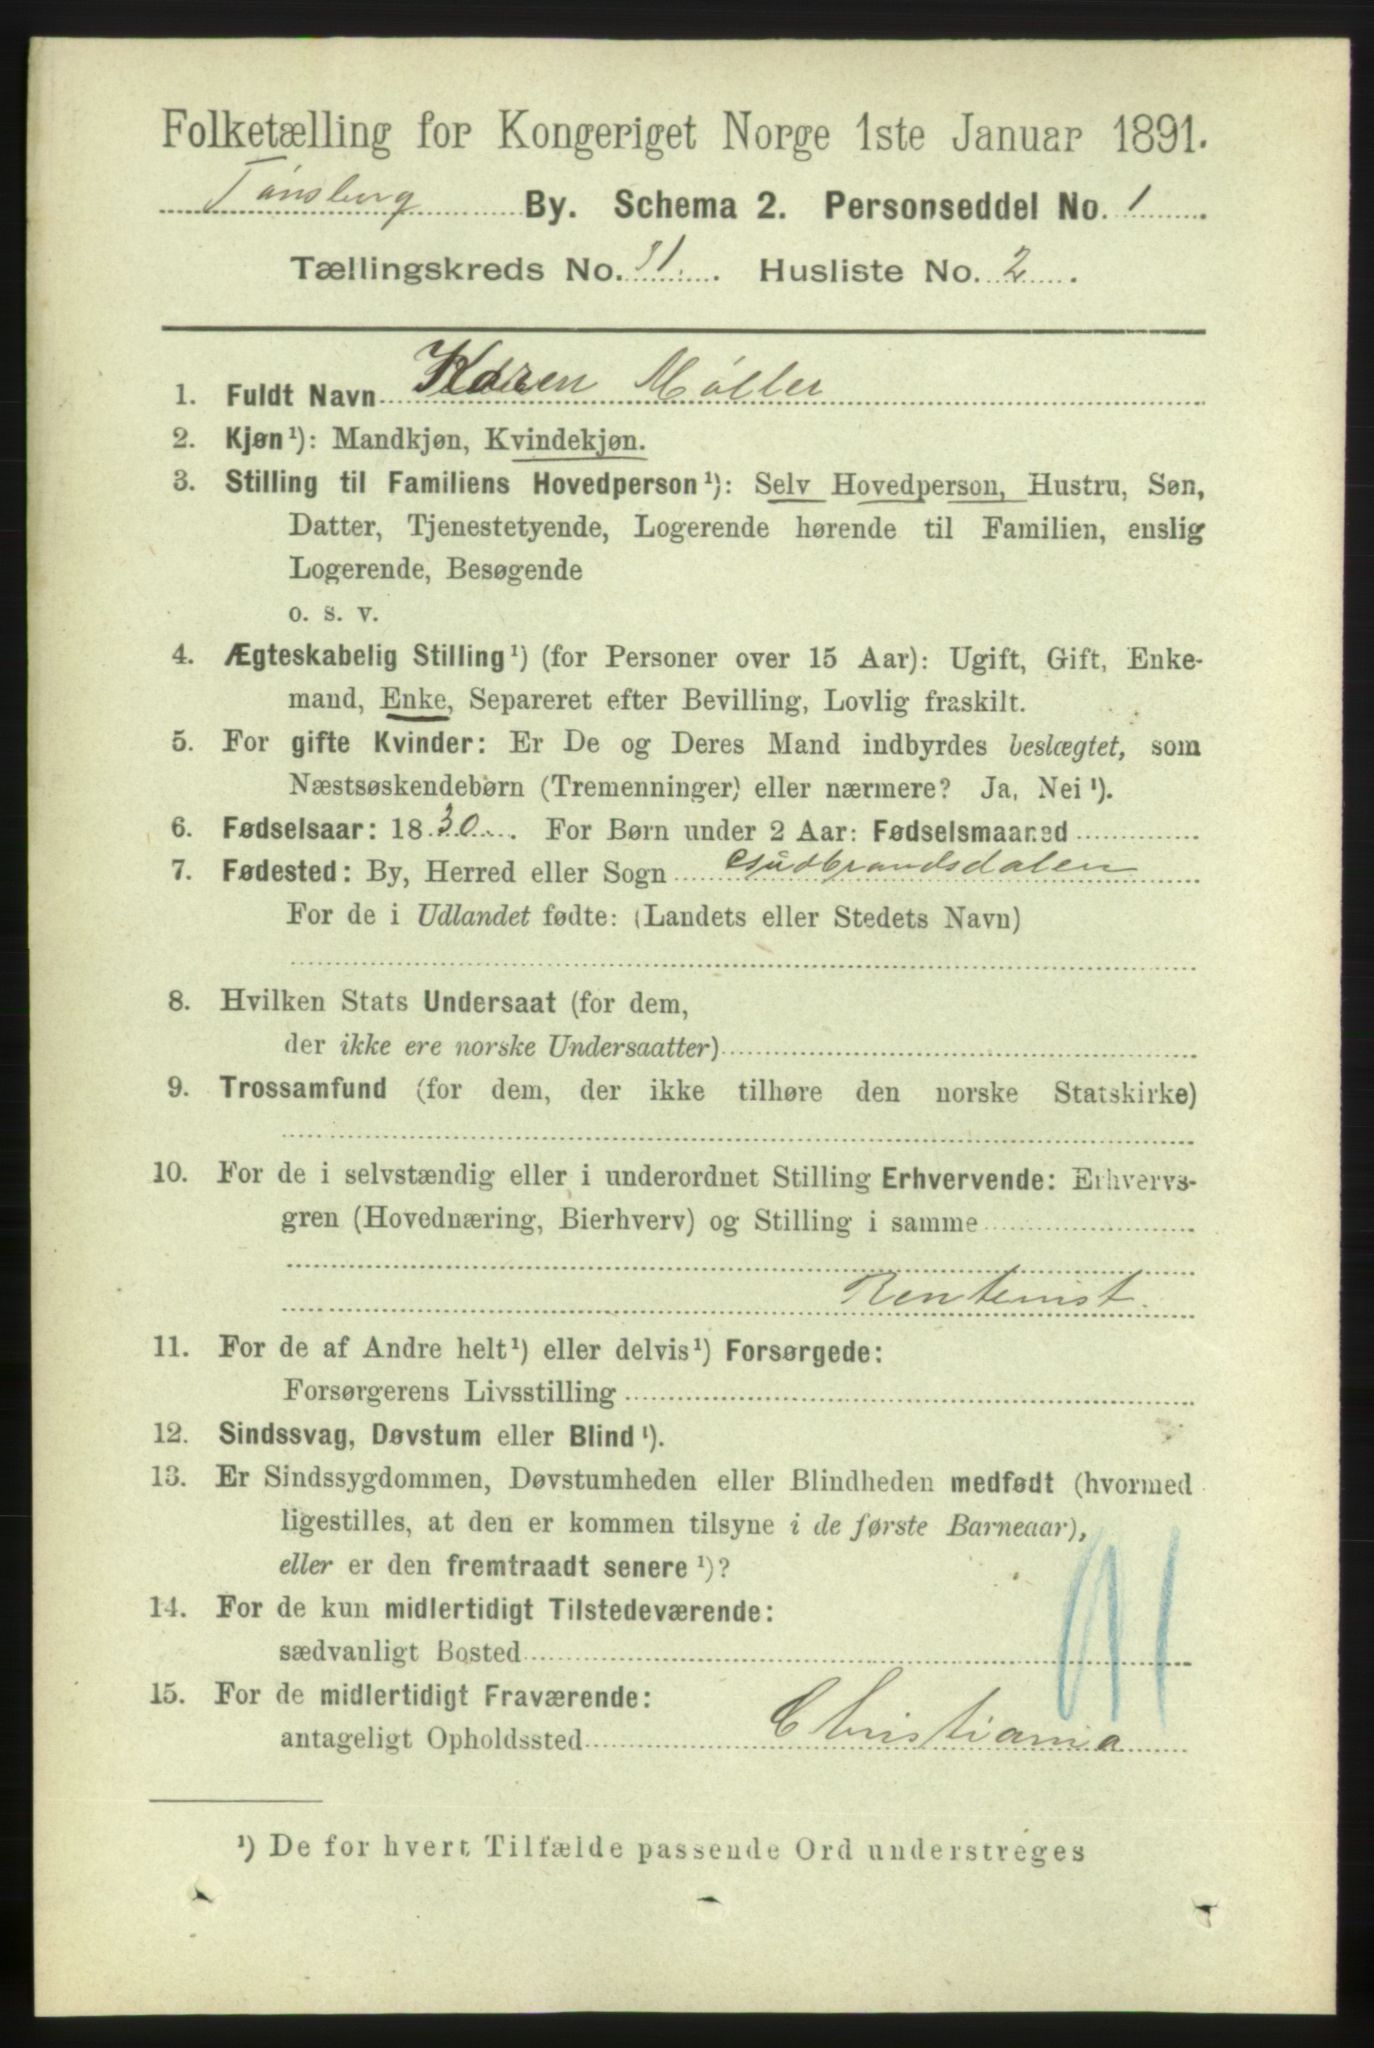 Folketælling for Kongeriget Norge 1ste Januar 1891.
Tønsberg By. Schema 2. Personseddel No. 1
Tællingskreds No. 11. Husliste No. 2.
1. Fuldt Navn Karen Møller
2. Kjøn¹): Mandkjøn, Kvindekjøn.
3. Stilling til Familiens Hovedperson¹): Selv Hovedperson, Hustru, Søn,
Datter, Tjenestetyende, Logerende hørende til Familien, enslig
Logerende, Besøgende
o. s. v.
4. Ægteskabelig Stilling¹) (for Personer over 15 Aar): Ugift, Gift, Enke-
mand, Enke, Separeret efter Bevilling, Lovlig fraskilt.
5. For gifte Kvinder: Er De og Deres Mand indbyrdes beslægtet, som
Næstsøskendebørn (Tremenninger) eller nærmere? Ja, Nei¹).
6. Fødselsaar: 1830. For Børn under 2 Aar: Fødselsmaaned
7. Fødested: By, Herred eller Sogn Gudbrandsdalen
For de i Udlandet fødte: (Landets eller Stedets Navn)
8. Hvilken Stats Undersaat (for dem,
der ikke ere norske Undersaatter)
9. Trossamfund (for dem, der ikke tilhøre den norske Statskirke)
10. For de i selvstændig eller i underordnet Stilling Erhvervende: Erhvervs-
gren (Hovednæring, Bierhverv) og Stilling i samme
Rentenist.
11. For de af Andre helt¹) eller delvis¹) Forsørgede:
Forsørgerens Livsstilling
12. Sindssvag, Døvstum eller Blind¹).
13. Er Sindssygdommen, Døvstumheden eller Blindheden medfødt (hvormed
ligestilles, at den er kommen tilsyne i de første Barneaar),
eller er den fremtraadt senere¹)?
14. For de kun midlertidigt Tilstedeværende:
sædvanligt Bosted
15. For de midlertidigt Fraværende:
antageligt Opholdssted Christiania
¹) De for hvert Tilfælde passende Ord understreges